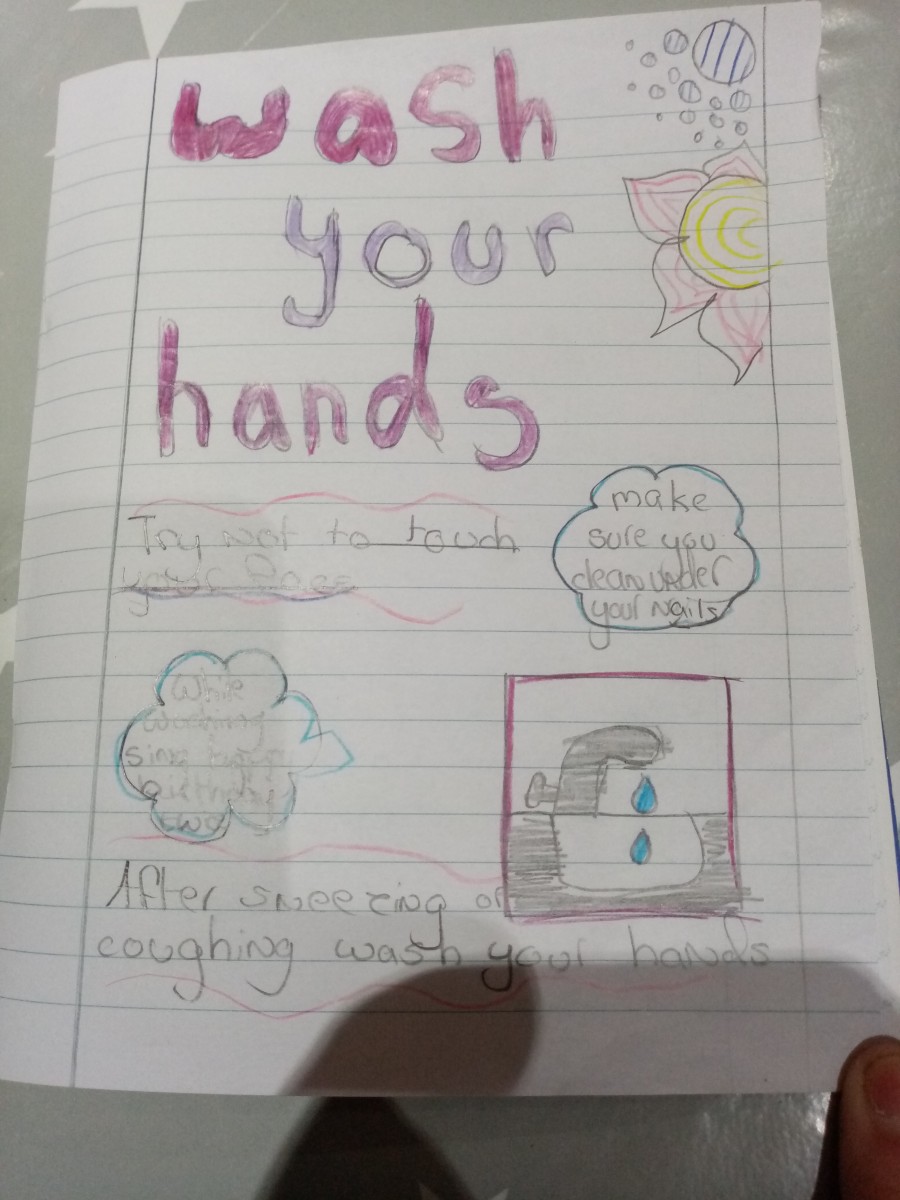 wash
your
hands
Try not to touch
your face
make
sure you
clean under
your nails
While
washing
sing happy
birthday
two
After sneezing or
coughing wash your hands